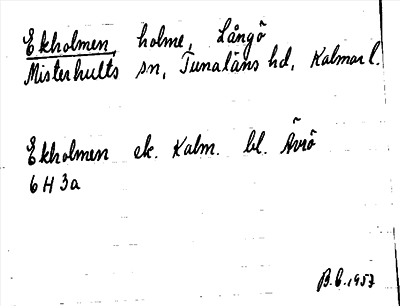 Ekholmen, holme, Långö
Misterhults sn, Tunaläns hd, Kalmar l.
Ekholmen ek. Kalm. bl. Ävrö
6 H 3a
B.G. 1957